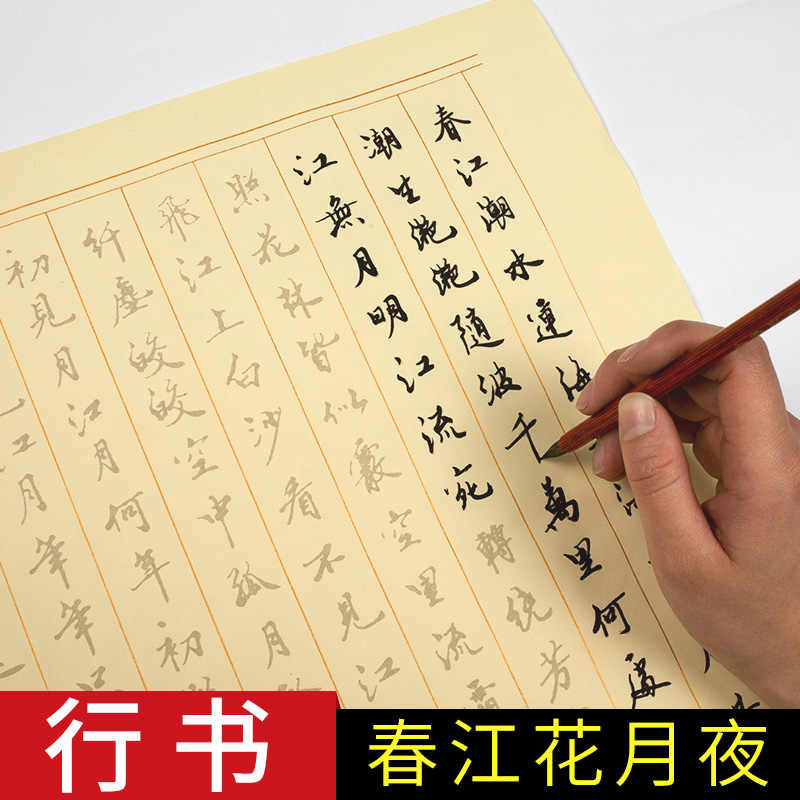 春江潮水連海
潮生滟滟隨波千萬里何處
江無月明江流宛轉繞芳
照花林皆似霰空里流霜
飛江上白沙看不見江
纤塵皎皎空中孤月
初見月江月何年初
江月年年
行书
春江花月夜